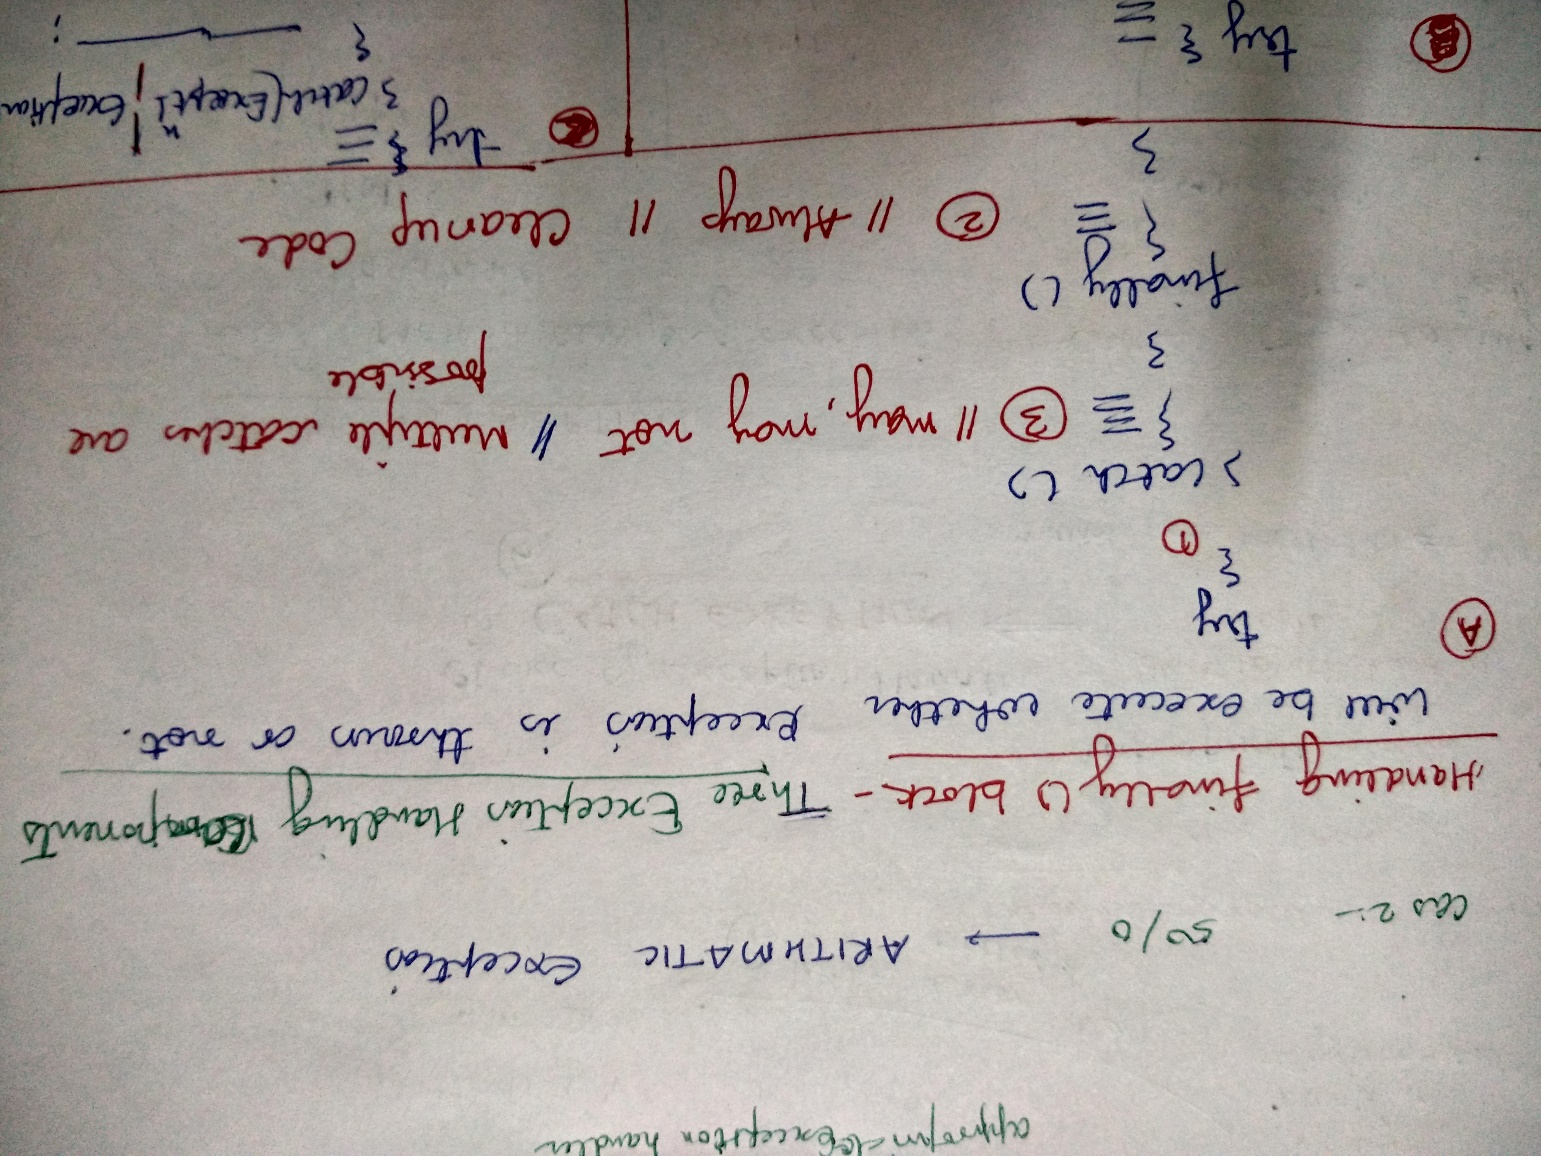 Exception handler
cas 2:- 50/0 → ARITHMATIC Exception
Handling finally () block - Three Exception Handling Components
will be execute whether Exception is thrown or not.
(A) try
{
(1)
} catch ()
{ (3) // may, may not // Multiple catches are
possible
}
finally ()
{ (2) // Always // Cleanup Code
}
try {
try {
} catch (Exceptn | Exception
{